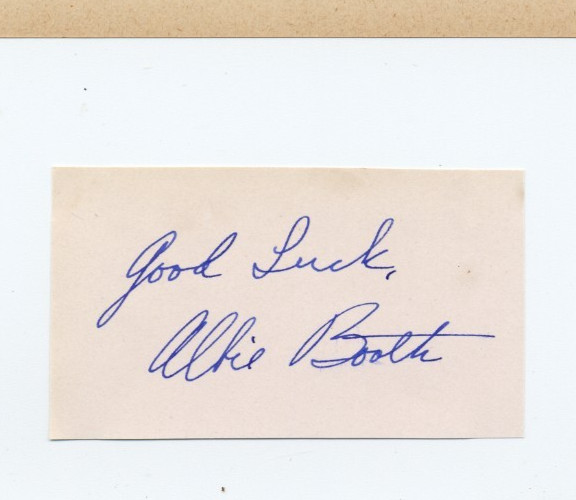 Good Luck,
Albie Booth